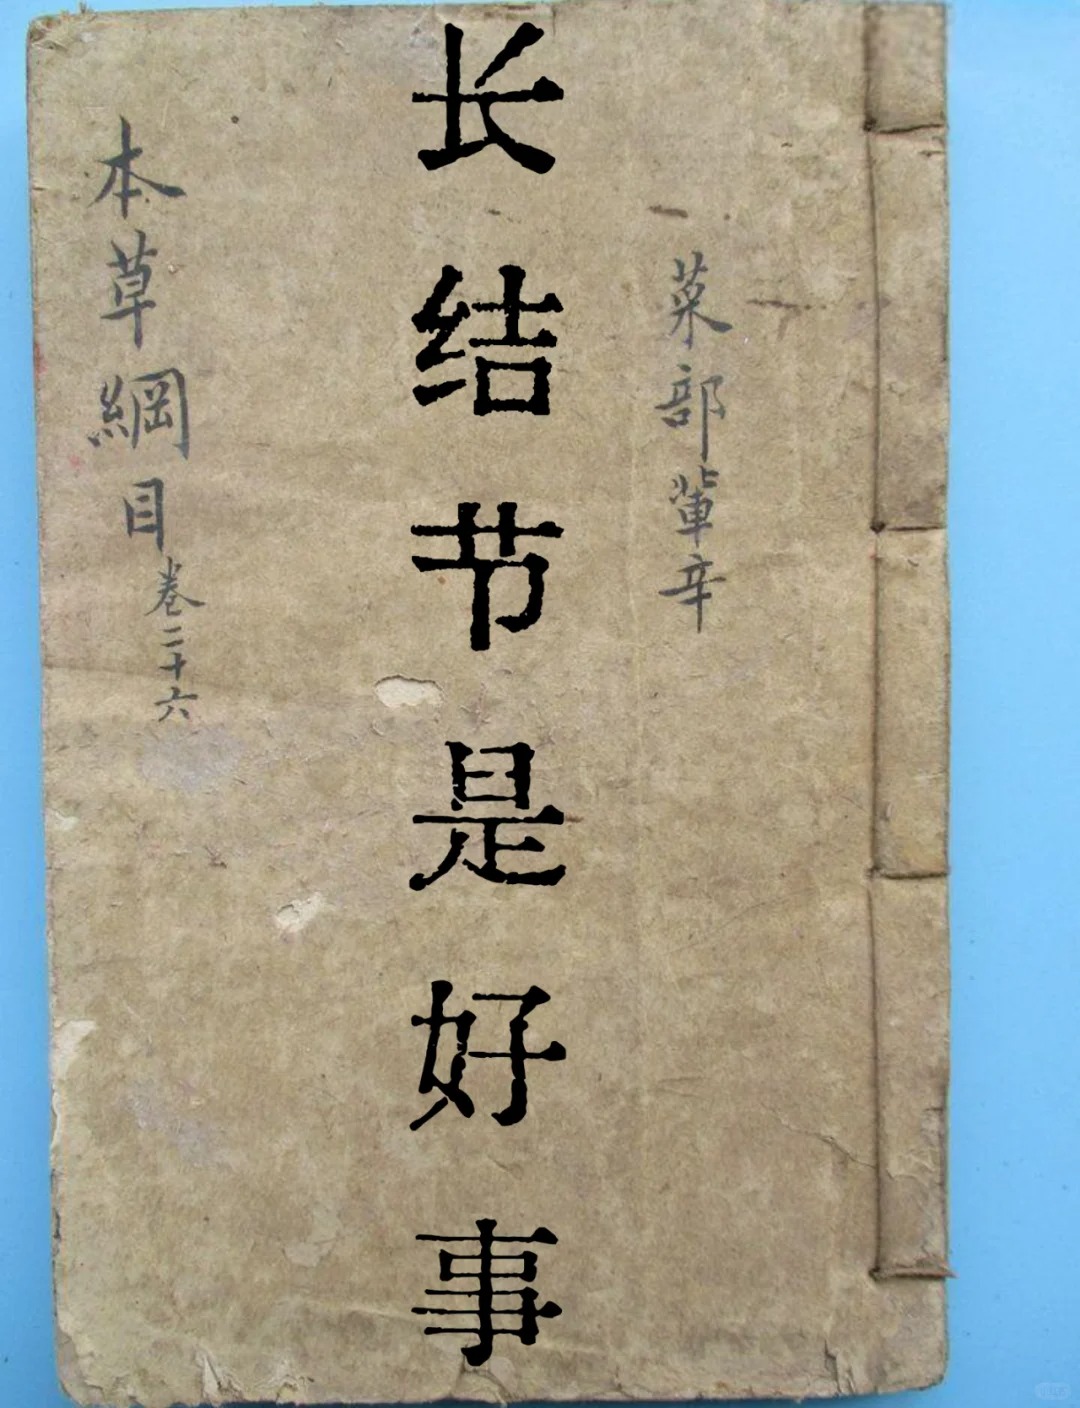 长结节是好事
菜部葷辛
本草綱目卷二十六